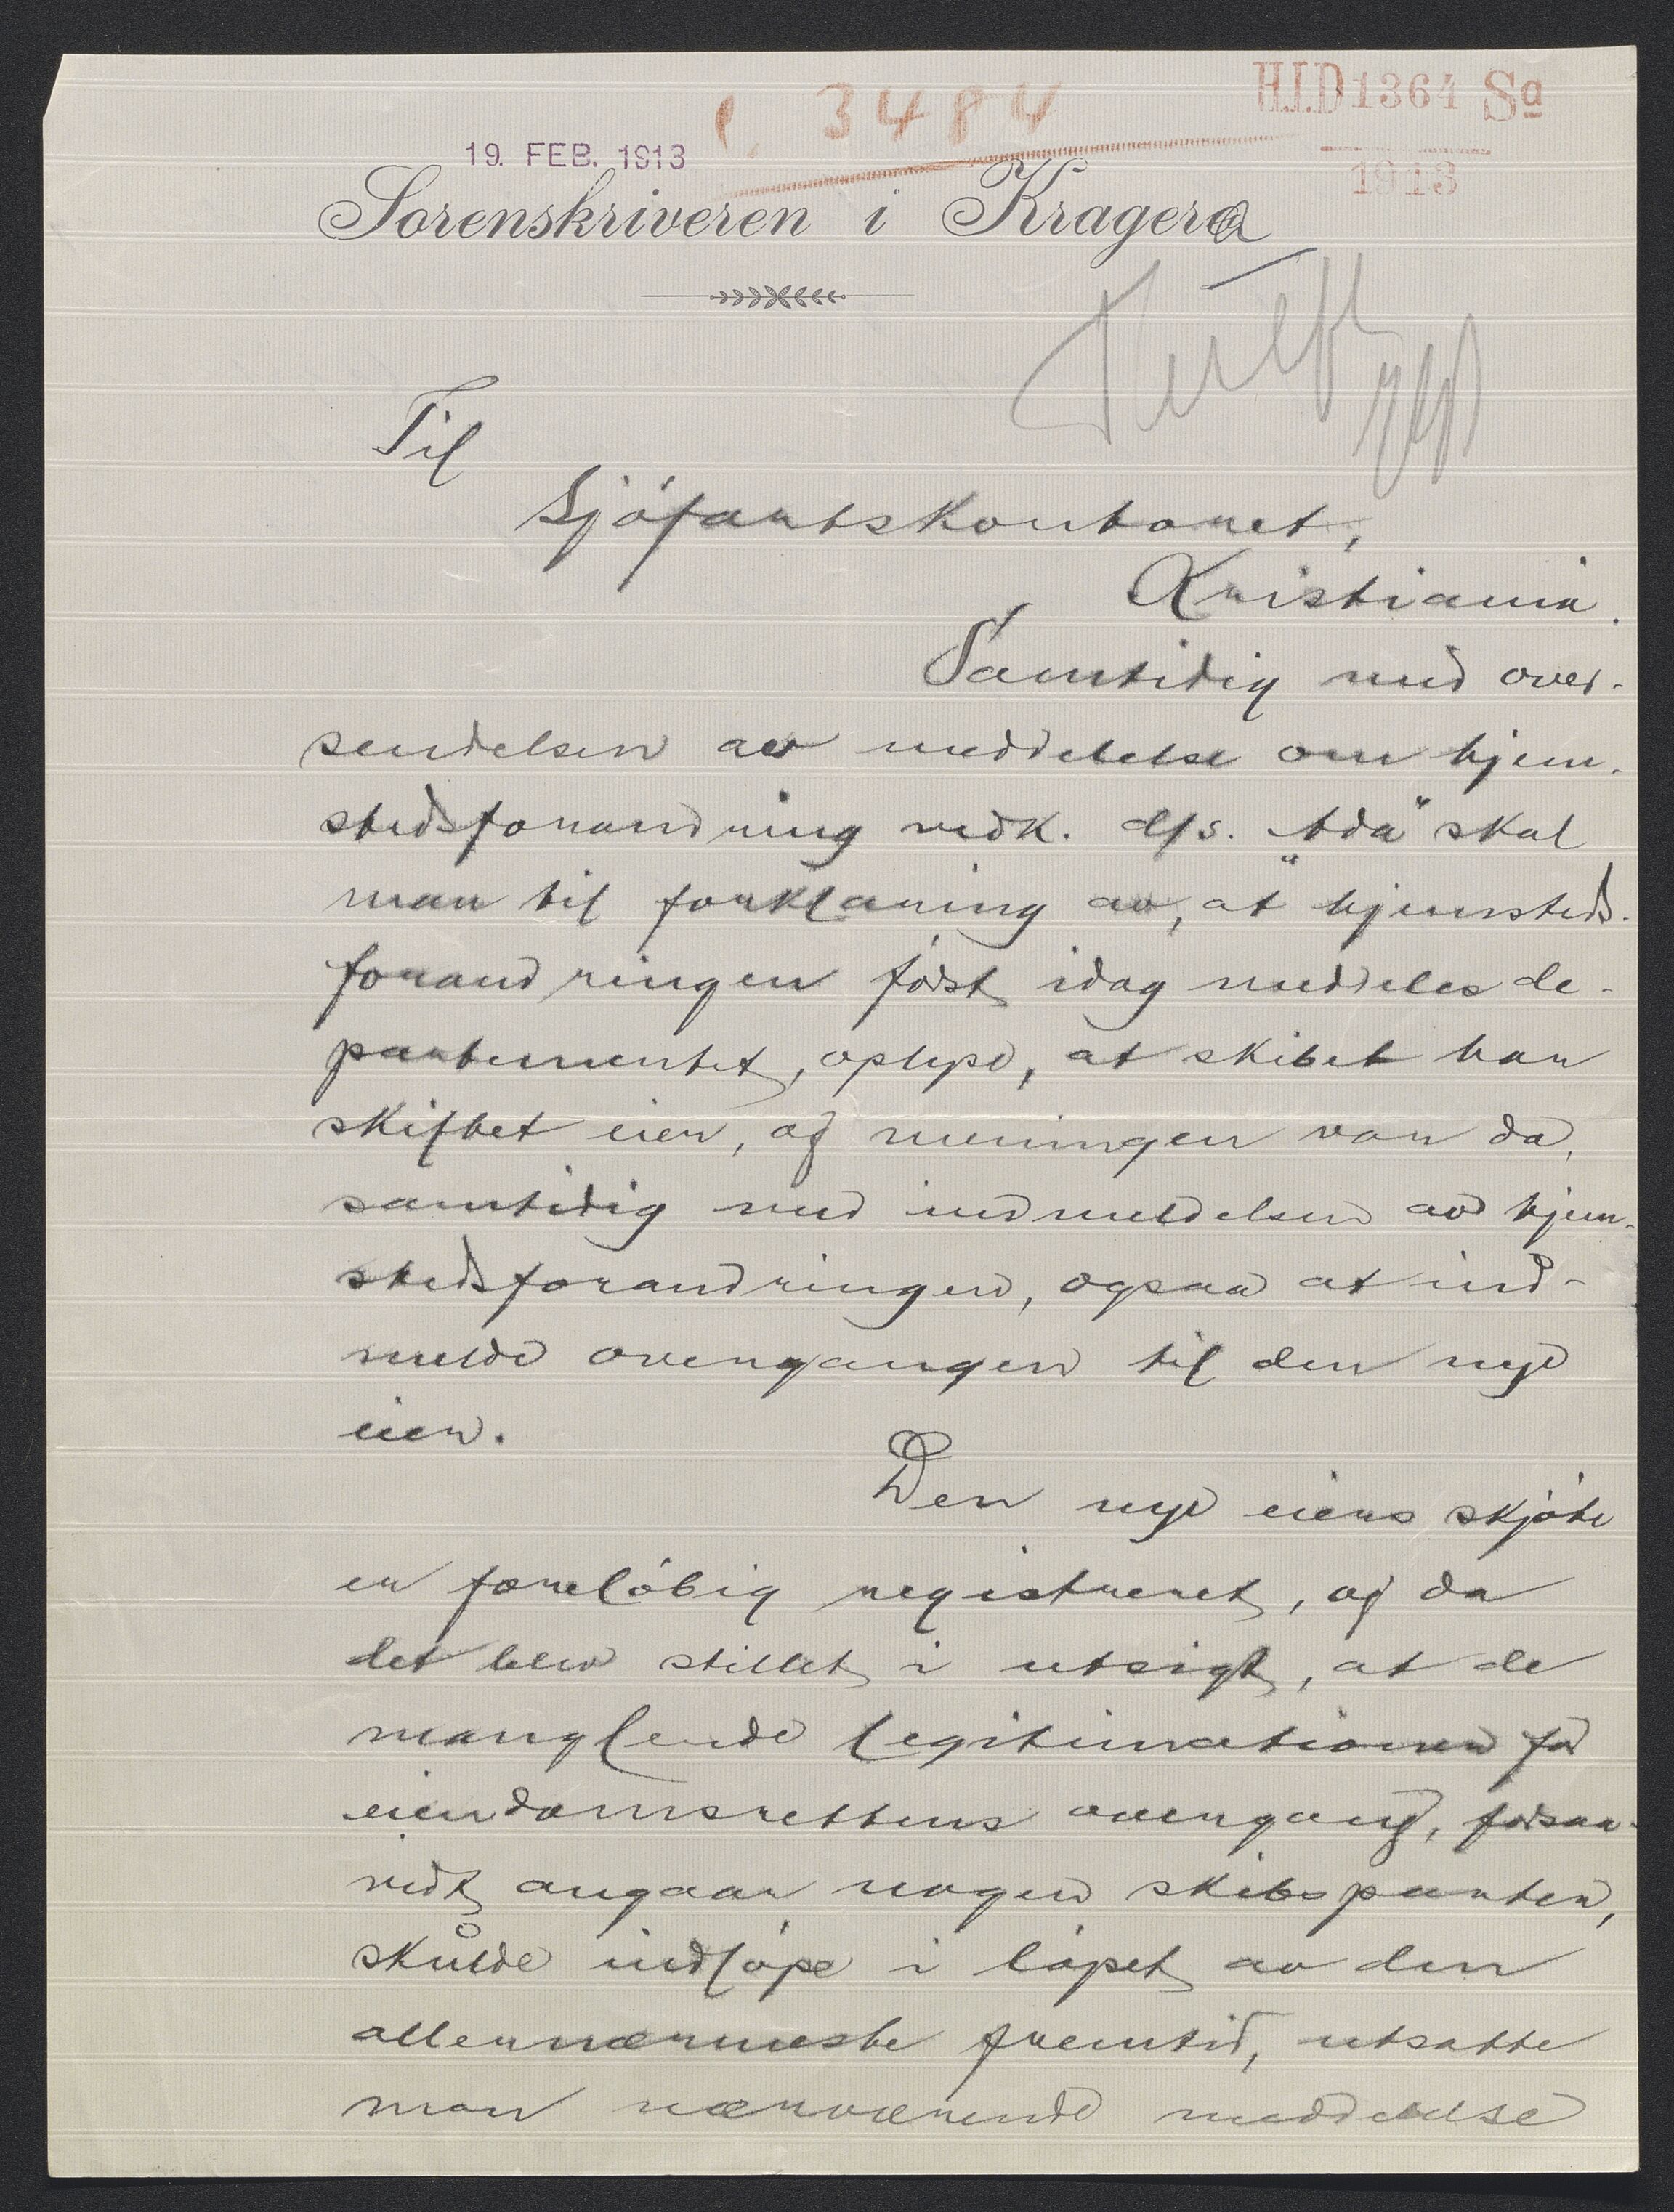 H.I.D 1364 Sa
1913
3484
19. FEB. 1913
Sorenskriveren i Kragerø
Til
Sjöfartskontoret,
Kristiania.
Samtidig med over-
sendelsen av meddelelse om hjem-
stedsforandring vedk. d/s. "Ada" skal
man til forklaring av, at hjemsteds-
forandringen först idag meddeles de-
partementet, oplyse, at skibet har
skiftet eier, og meningen var da,
samtidig med indmeldelsen av hjem-
stedsforandringen, ogsaa at ind-
melde overgangen til den nye
eier.
Den nye eiers skjöte
er foreløbig registreret, og da
det blev stillet i utsigt, at de
manglende legitimationer for
eiendomsrettens overgang, forsaa-
vidt angaar nogen skibsparter,
skulde indløpe i løpet av den
allernærmeste fremtid, utsatte
man nærværende meddelelse